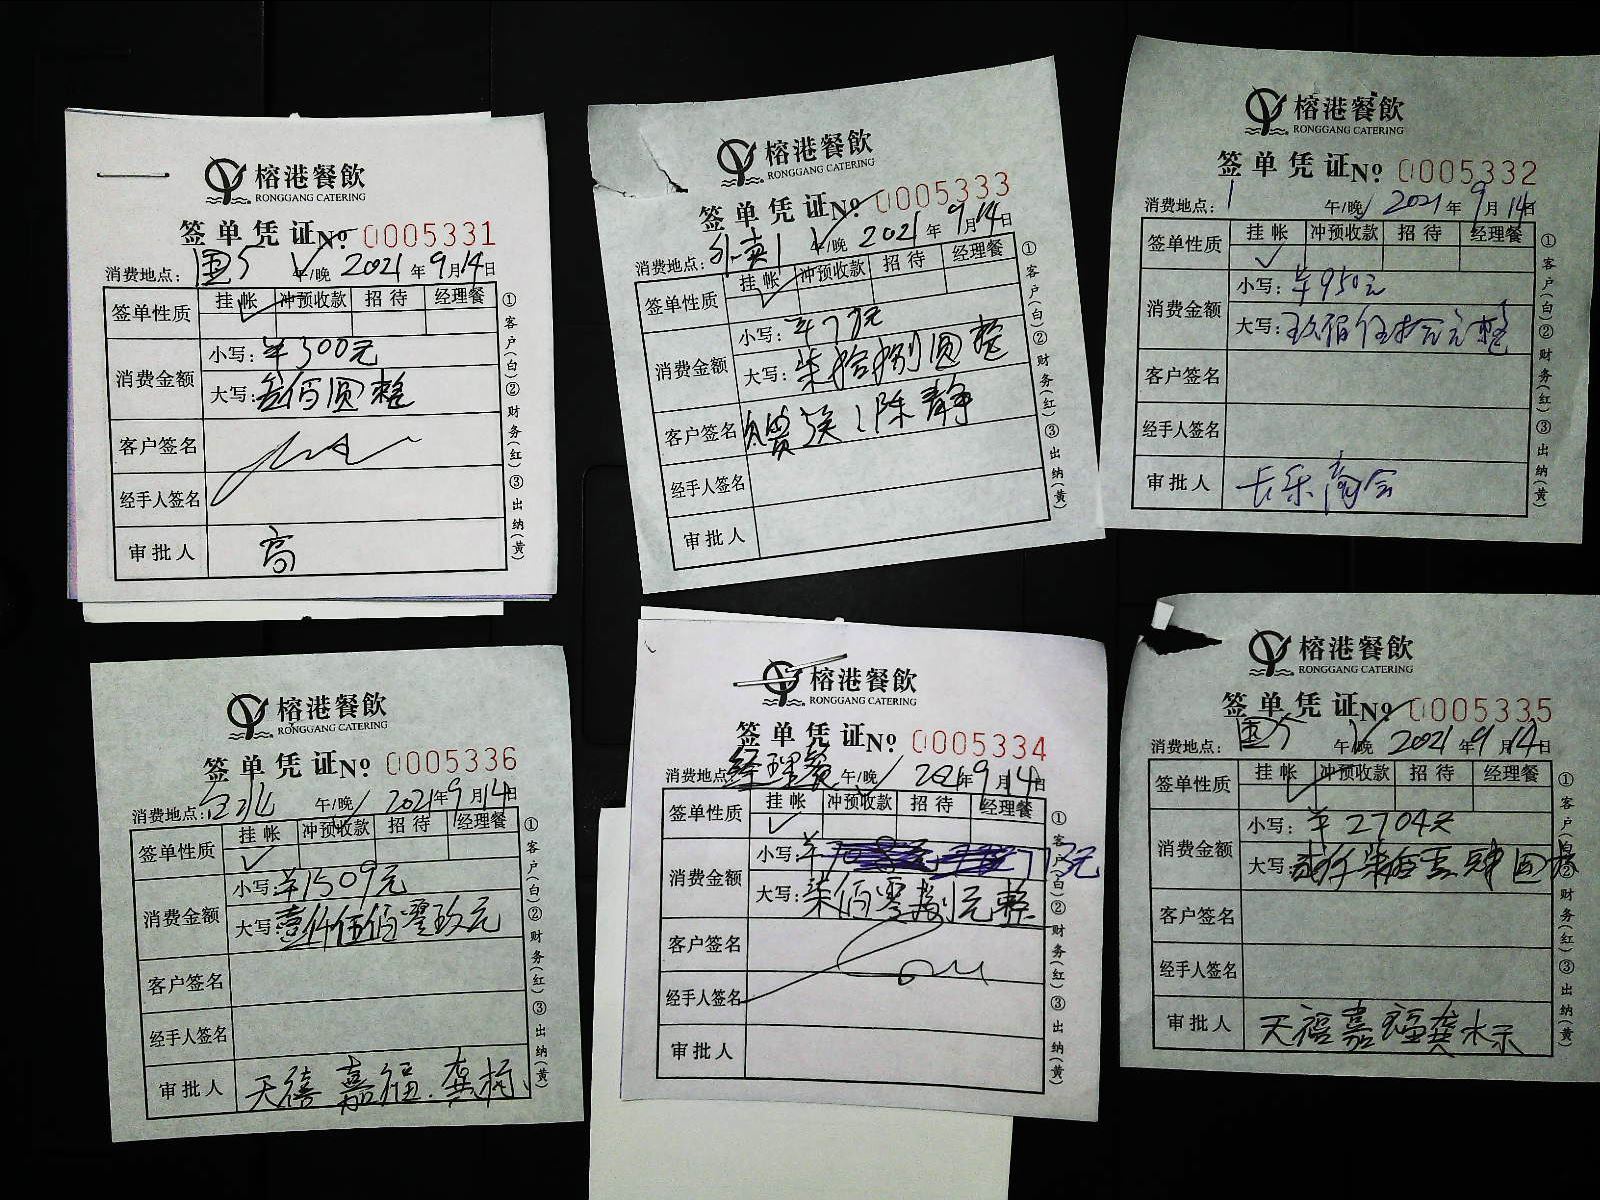 榕港餐飲
RONGGANG CATERING
签单凭证 No 0005331
消费地点: 午/晚 2021年9月14日
签单性质 挂帐 冲预收款 招待 经理餐
消费金额 小写: ¥300元
大写: 叁佰圆整
客户签名
经手人签名
审批人 高
①客户(白)②财务(红)③出纳(黄)
榕港餐飲
RONGGANG CATERING
签单凭证 No 0005333
消费地点: 外卖1 午/晚 2021年9月14日
签单性质 挂帐 冲预收款 招待 经理餐
消费金额 小写: ¥78元
大写: 柒拾捌圆整
客户签名 陈静
经手人签名
审批人
①客户(白)②财务(红)③出纳(黄)
榕港餐飲
RONGGANG CATERING
签单凭证 No 0005332
消费地点: 1 午/晚 2021年9月14日
签单性质 挂帐 冲预收款 招待 经理餐
消费金额 小写: ¥950元
大写: 玖佰伍拾元整
客户签名
经手人签名
审批人 长乐商会
①客户(白)②财务(红)③出纳(黄)
榕港餐飲
RONGGANG CATERING
签单凭证 No 0005336
消费地点: 午/晚 2021年9月14日
签单性质 挂帐 冲预收款 招待 经理餐
消费金额 小写: ¥1509元
大写: 壹仟伍佰零玖元
客户签名
经手人签名
审批人 天禧嘉福.龚标
①客户(白)②财务(红)③出纳(黄)
榕港餐飲
RONGGANG CATERING
签单凭证 No 0005334
消费地点: 经理餐 午/晚 2021年9月14日
签单性质 挂帐 冲预收款 招待 经理餐
消费金额 小写: ¥ 元
大写: 柒佰零捌元整
客户签名
经手人签名
审批人
①客户(白)②财务(红)③出纳(黄)
榕港餐飲
RONGGANG CATERING
签单凭证 No 0005335
消费地点: 午/晚 2021年9月14日
签单性质 挂帐 冲预收款 招待 经理餐
消费金额 小写: ¥2704元
大写: 贰仟柒佰零肆圆整
客户签名
经手人签名
审批人 天禧嘉福龚标
①客户(白)②财务(红)③出纳(黄)